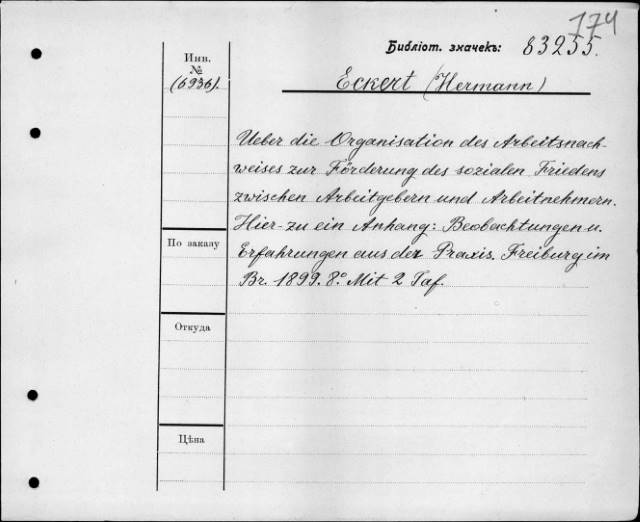 174
Библіот. значекъ: 83255.
Инв.
№
(6936).
Eckert (Hermann)
Ueber die Organisation des Arbeitsnach-
weises zur Förderung des sozialen Friedens
zwischen Arbeitgebern und Arbeitnehmern.
Hier-zu ein Anhang: Beobachtungen u.
Erfahrungen aus der Praxis. Freiburg im
Br. 1899. 8º. Mit 2 Taf.
По заказу
Откуда
Цѣна